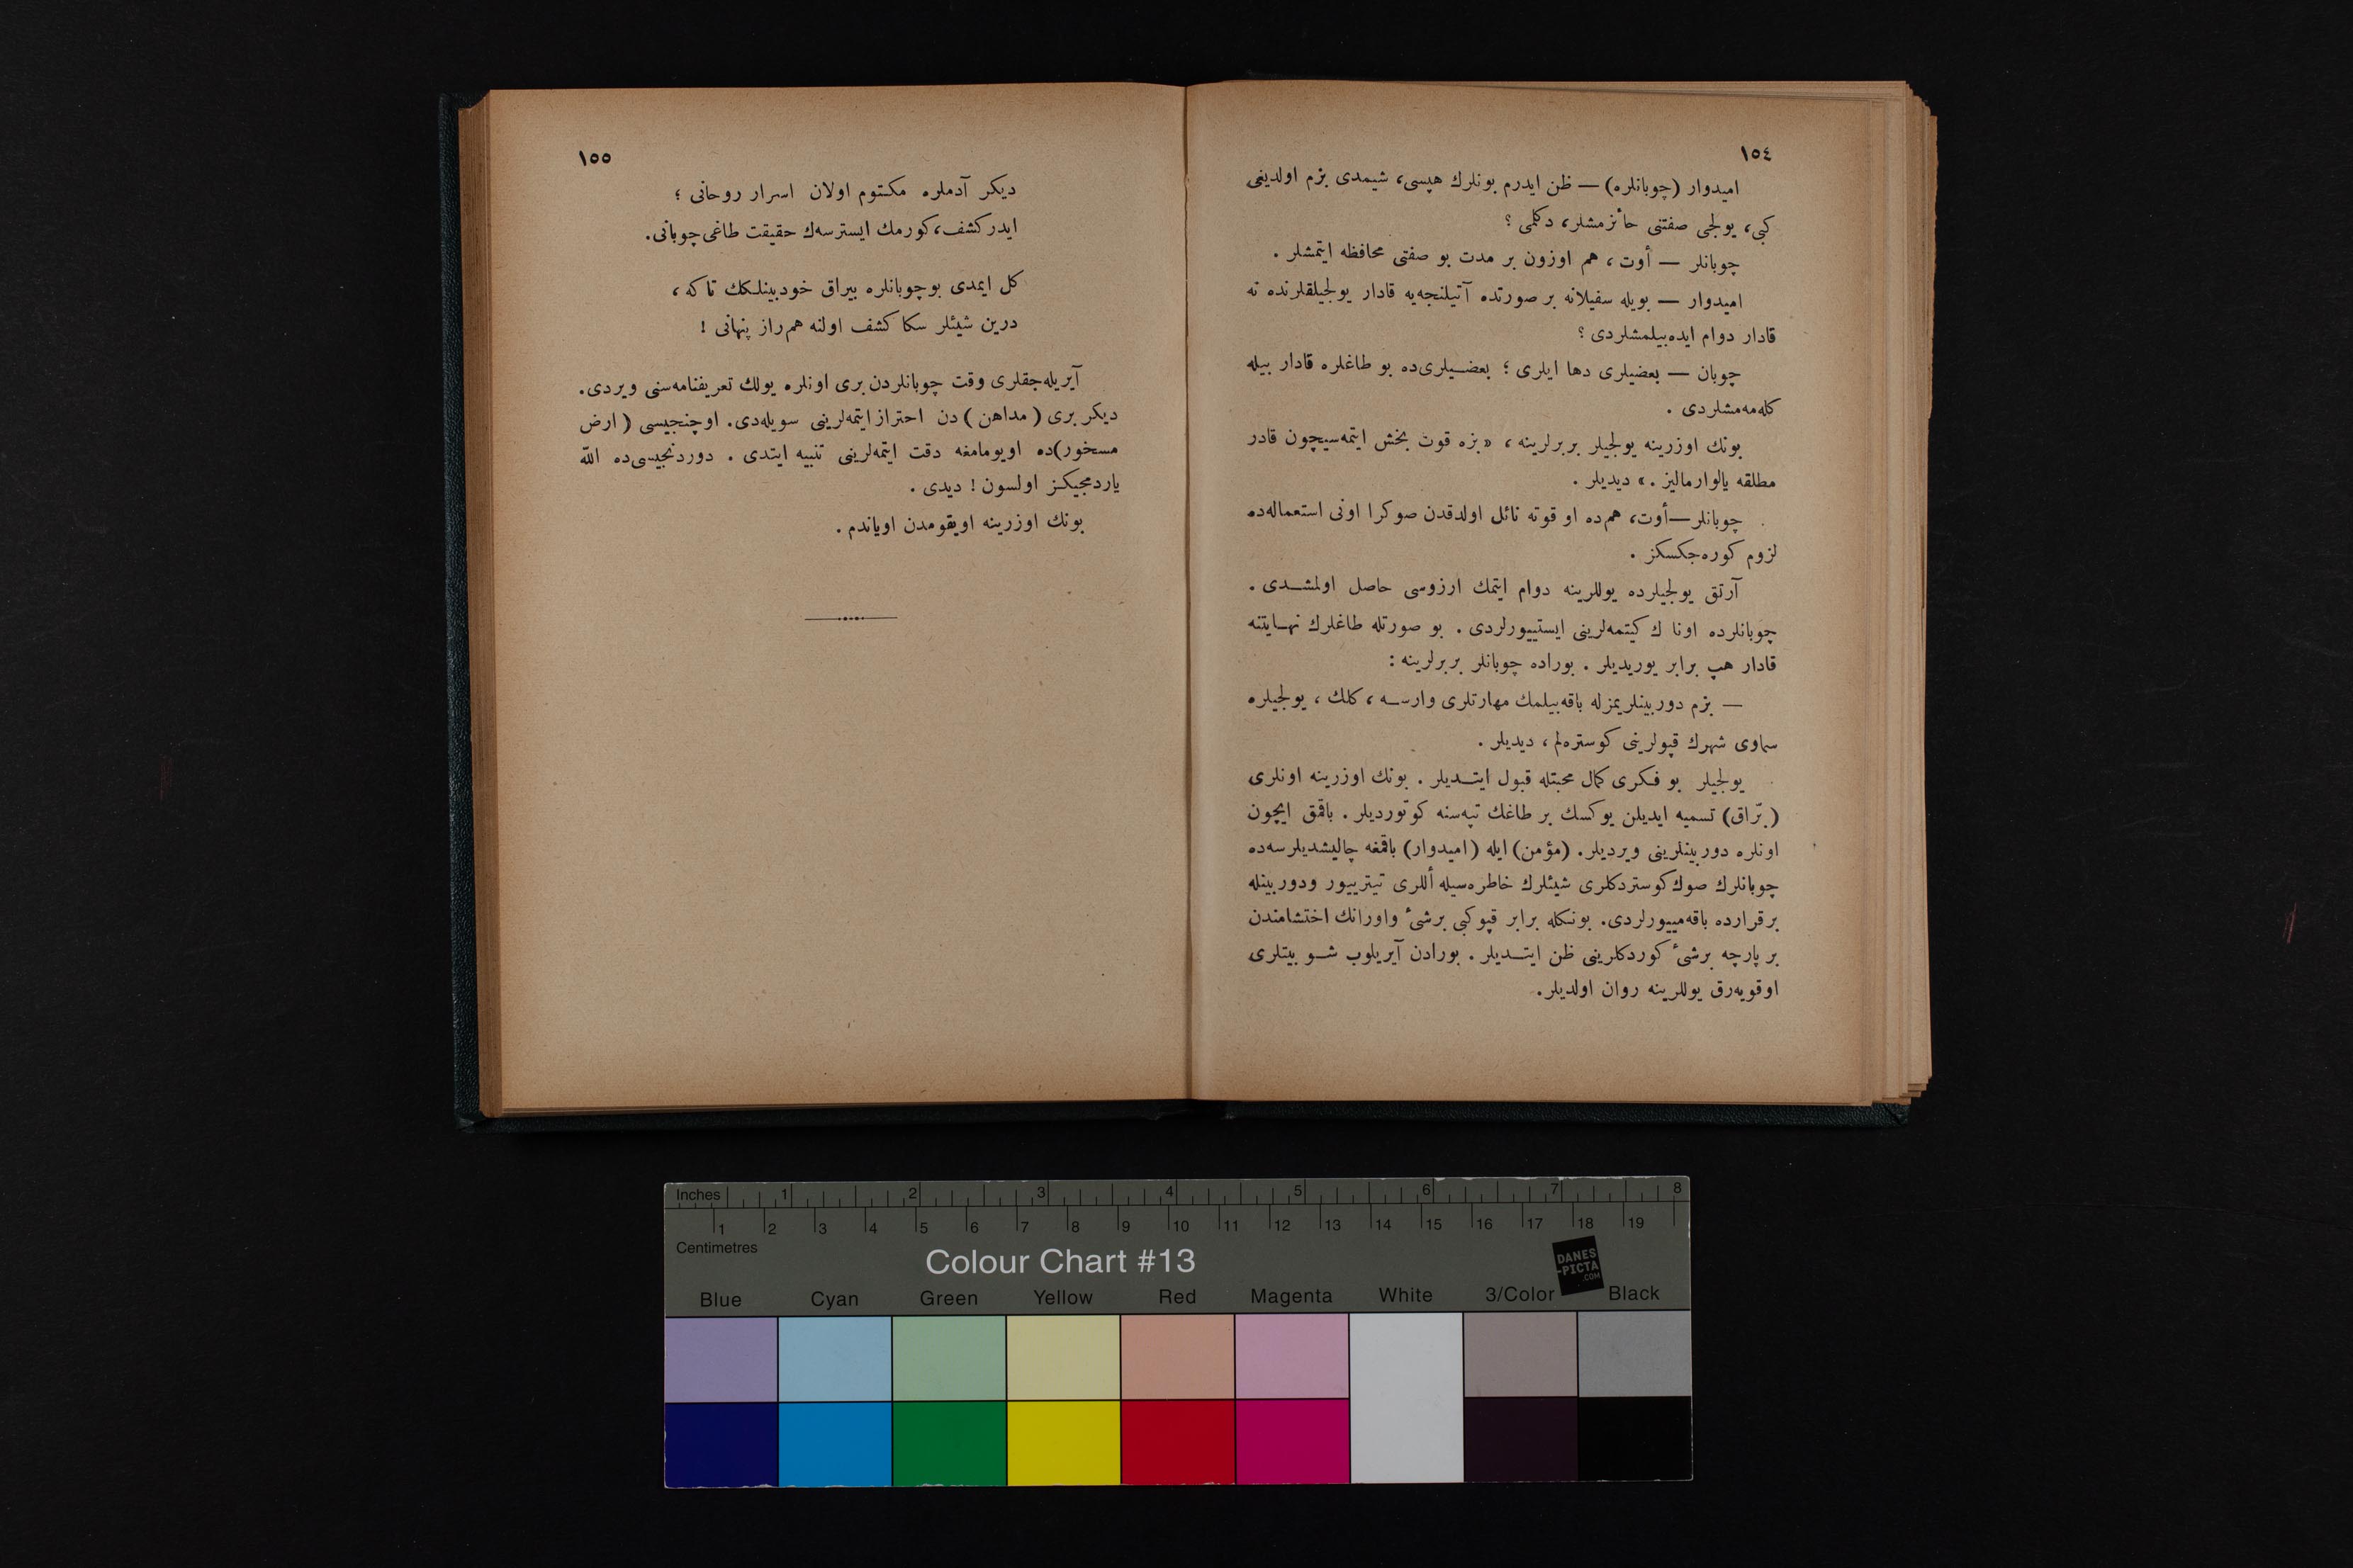 ١٥٤
امیدوار (چوبانلره) — ظن ایدرم بونلرك هپسی، شیمدی بزم اولدیغی
کبی، یولجی صفتنی حائزمشلر، دکلمی ؟
چوبانلر — أوت ، هم اوزون بر مدت بو صفتی محافظه ایتمشلر .
امیدوار — بویله سفیلانه بر صورتده آتیلنجه‌یه قادار یولجیلقلرنده نه
قادار دوام ایده‌بیلمشلردی ؟
چوبان — بعضیلری دها ایلری ؛ بعضیلری‌ده بو طاغلره قادار بیله
کله‌مه‌مشلردی .
بونك اوزرینه یولجیلر بربرلرینه ، «بزه قوت بخش ایتمه‌سیچون قادر
مطلقه یالوارمالیز .» دیدیلر .
چوبانلر—أوت، هم‌ده او قوته نائل اولدقدن صوکرا اونی استعماله‌ده
لزوم کوره‌جکسکز .
آرتق یولجیلرده یوللرینه دوام ایتمك ارزوسی حاصل اولمشدی .
چوبانلرده اونا ك کیتمه‌لرینی ایستییورلردی . بو صورتله طاغلرك نهایتنه
قادار هپ برابر یوریدیلر . بوراده چوبانلر بربرلرینه :
— بزم دوربینلریمزله باقه‌بیلمك مهارتلری وارسه ، کلك ، یولجیلره
سماوی شهرك قپولرینی کوستره‌لم ، دیدیلر .
یولجیلر بو فکری کمال محبتله قبول ایتدیلر . بونك اوزرینه اونلری
(برّاق) تسمیه ایدیلن یوکسك بر طاغك تپه‌سنه کوتوردیلر . باقمق ایچون
اونلره دوربینلرینی ویردیلر. (مؤمن) ایله (امیدوار) باقمغه چالیشدیلرسه‌ده
چوبانلرك صوك کوستردکلری شیئلرك خاطره‌سیله أللری تیترییور ودوربینله
برقرارده باقه‌مییورلردی. بونکله برابر قپو کبی برشیٔ واورانك اختشامندن
بر پارچه برشیٔ کوردکلرینی ظن ایتدیلر . بورادن آیریلوب شو بیتلری
اوقویه‌رق یوللرینه روان اولدیلر.
١٥٥
دیکر آدملره مکتوم اولان اسرار روحانی ؛
ایدر کشف، کورمك ایسترسه‌ك حقیقت طاغی چوبانی.
کل ایمدی بو چوبانلره بیراق خودبینلکك تا که ،
درین شیئلر سکا کشف اولنه هم راز پنهانی !
آیریله‌جقلری وقت چوبانلردن بری اونلره یولك تعریفنامه‌سنی ویردی.
دیکر بری ( مداهن ) دن احتراز ایتمه‌لرینی سویله‌دی. اوچنجیسی ( ارض
مسخور)ده اویومامغه دقت ایتمه‌لرینی تنبیه ایتدی . دوردنجیسی‌ده الله
یاردمجیکز اولسون ! دیدی .
بونك اوزرینه اویقومدن اویاندم .
Inches 1 2 3 4 5 6 7 8
1 2 3 4 5 6 7 8 9 10 11 12 13 14 15 16 17 18 19
Centimetres
Colour Chart #13
DANES
-PICTA
.COM
Blue Cyan Green Yellow Red Magenta White 3/Color Black